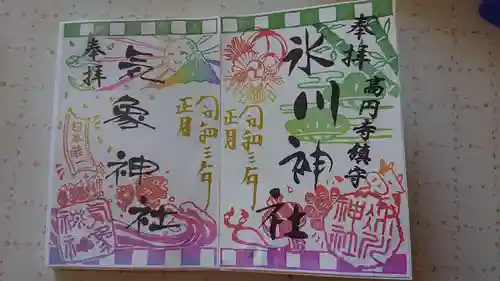 奉拝
高円寺鎮守
氷川神社
令和三年
正月
氷川神社
奉拝
気象神社
令和三年
正月
日本唯一
気象神社